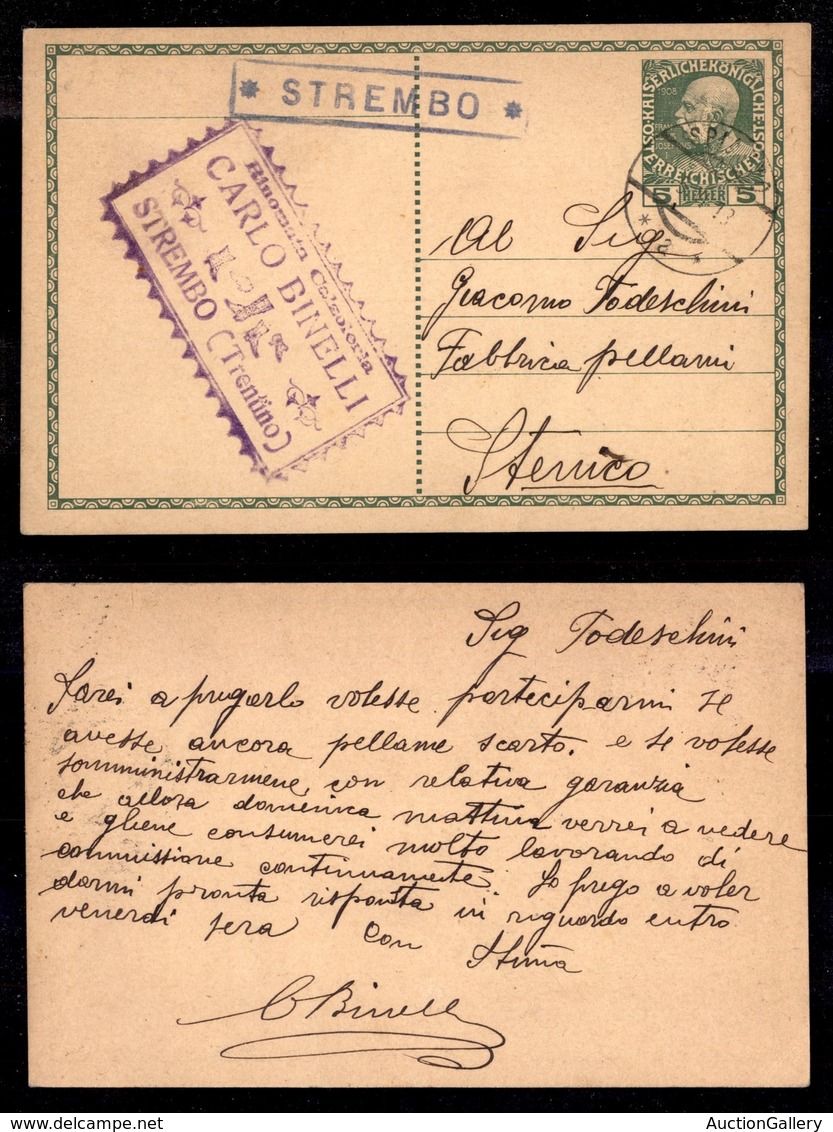 * STREMBO *
Rinomata Calzoleria
CARLO BINELLI
STREMBO (Trentino)
KAISERLICHEKÖNIGLICHE
ÖSTERREICHISCHEPOST
1908
5 HELLER 5
13
* a *
Al Sig
Giacomo Todeschini
Fabbrica pellami
Stenico
Sig Todeschini
Sarei a pregarlo volesse parteciparmi se
avesse ancora pellame scarto. e se volesse
somministrarmene con relativa garanzia
che allora domenica mattina verrei a vedere
e gliene consumerei molto lavorando di
commissione continuamente. Lo prego a voler
darmi pronta risposta in riguardo entro
venerdi sera con
Stima
C Binelli
AuctionGallery